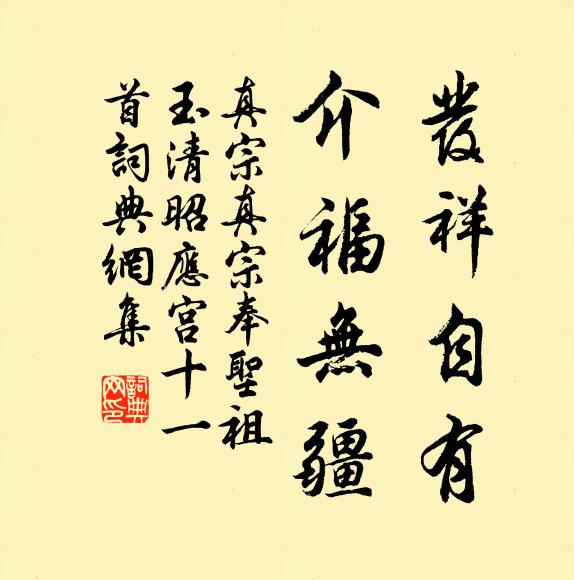 發祥自有
介福無疆
真宗真宗奉聖祖
玉清昭應宮十一
首詞典網集
詞典
网印